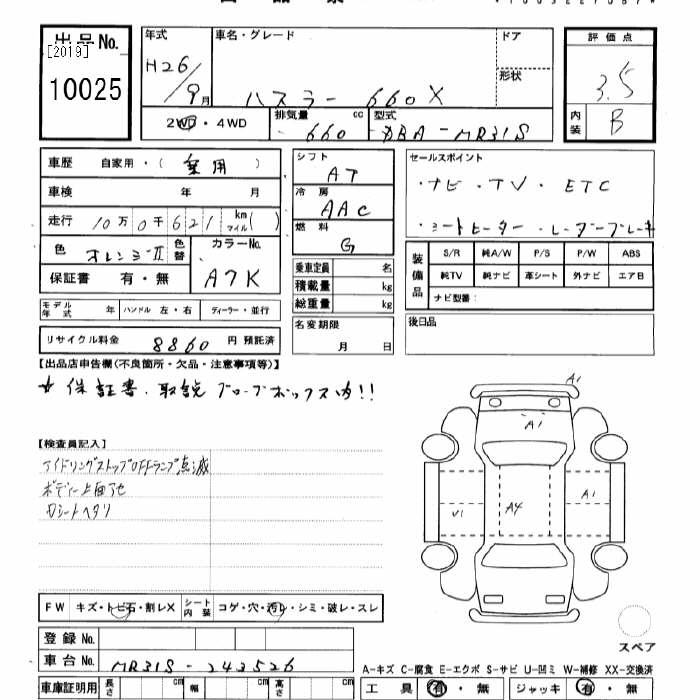 出品No.
[2019]
10025
年式
H26/9月
車名・グレード
ハスラー 660 X
ドア
形状
評価点
3.5
内装
B
2WD・4WD
排気量
660 cc
型式
DBA-MR31S
車歴 自家用・(乗用)
車検 年 月
走行 10万0千621 km マイル( )
色 オレンジⅡ 色替
カラーNo.
A7K
保証書 有・無
モデル年式 年 ハンドル 左・右 ディーラー・並行
リサイクル料金 8860 円 預託済
シフト
AT
冷房
AAC
燃料
G
乗車定員 名
積載量 kg
総重量 kg
名変期限
月 日
セールスポイント
・ナビ・TV・ETC
・シートヒーター・レーダーブレーキ
装備品
S/R 純A/W P/S P/W ABS
純TV 純ナビ 革シート 外ナビ エアB
ナビ型番:
後日品
【出品店申告欄(不良箇所・欠品・注意事項等)】
☆保証書、取説 グローブボックス内!!
【検査員記入】
アイドリングストップOFFランプ点滅
ボディー上面アセ
Dシートヘタリ
A1
A1
A1
V1
A4
FW キズ・トビ石・割レX シート内装 コゲ・穴・汚レ・シミ・破レ・スレ
登録No.
車台No. MR31S-243526
スペア
A-キズ C-腐食 E-エクボ S-サビ U-凹ミ W-補修 XX-交換済
車庫証明用 長さ cm 幅 cm 高さ cm
工具 有・無 ジャッキ 有・無